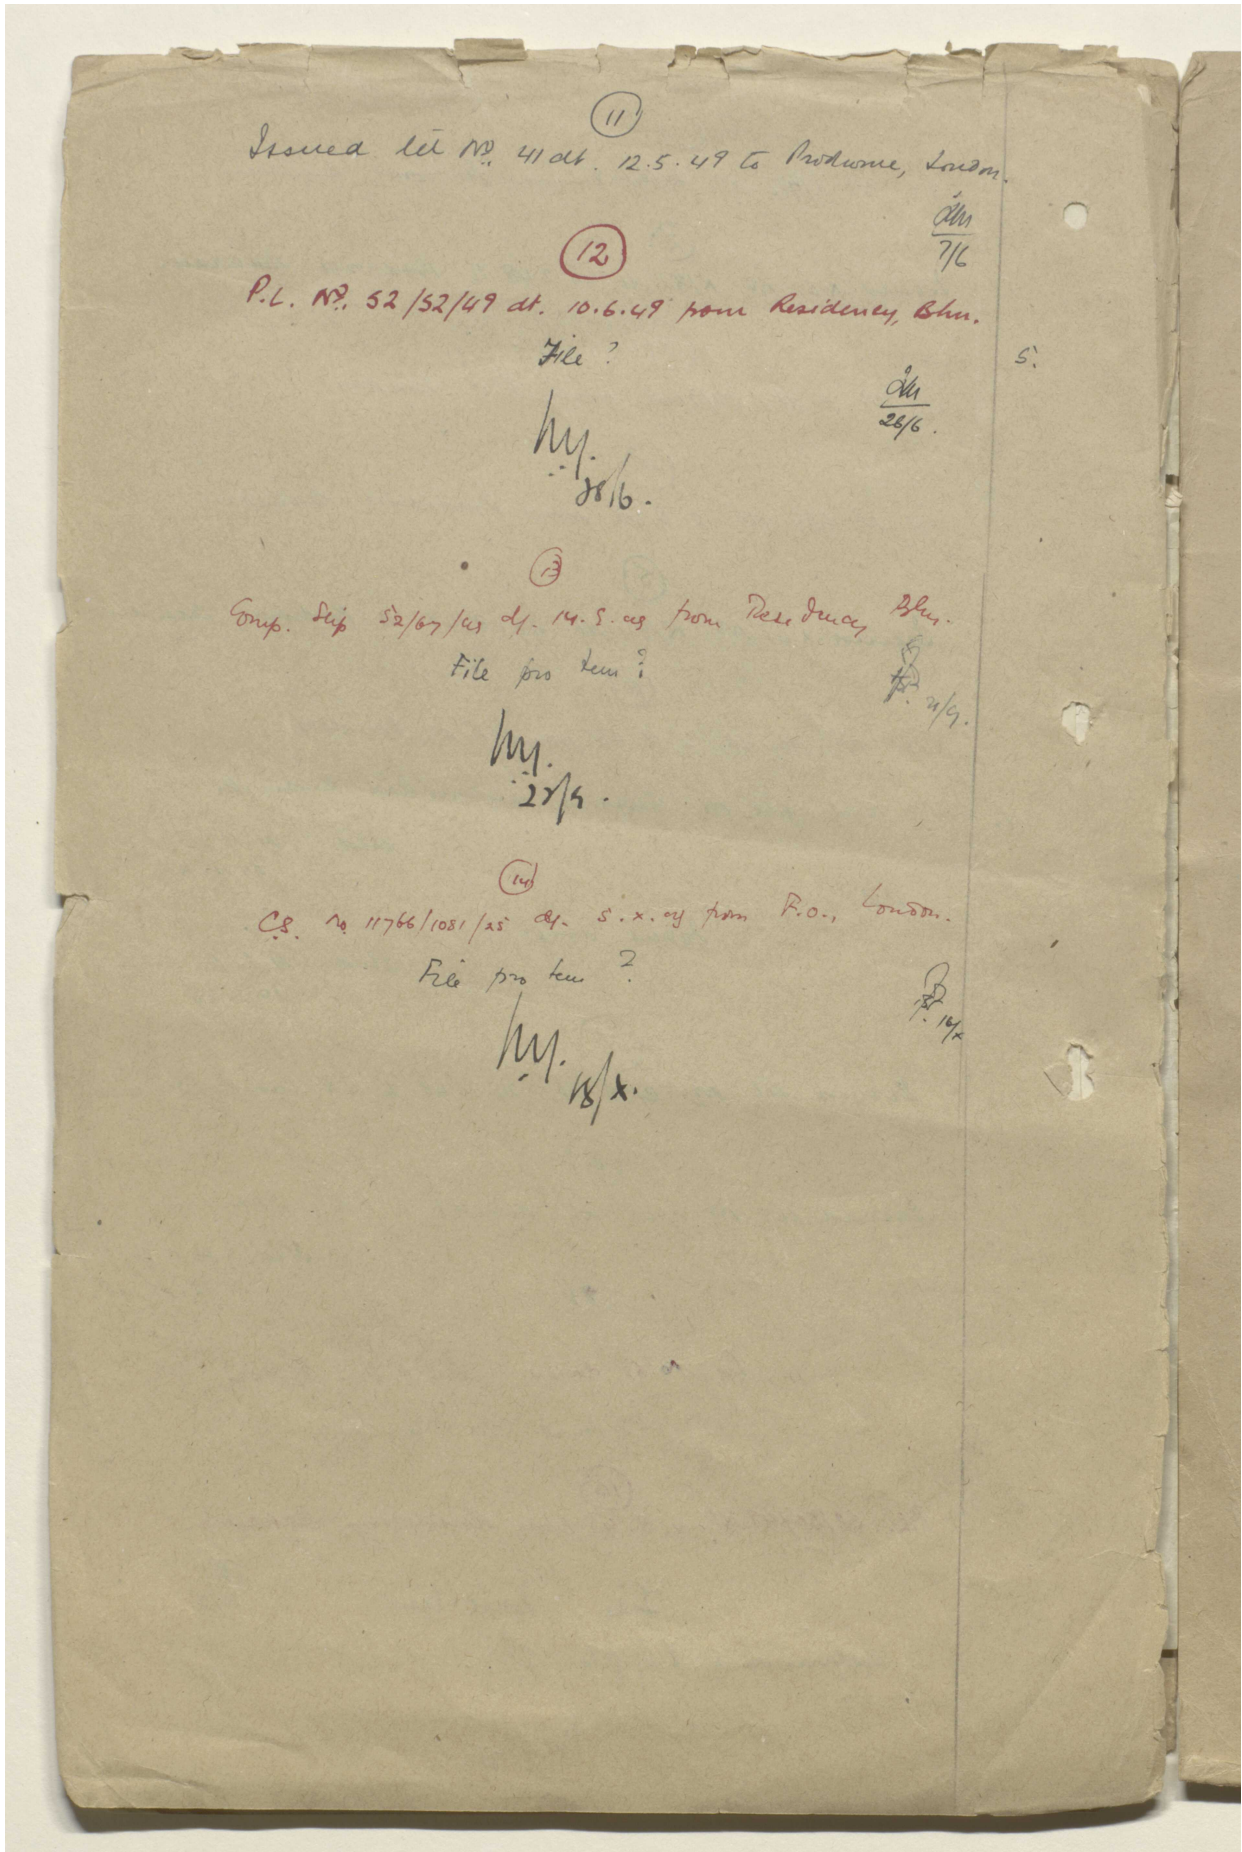 11
Issued let No. 41 dt. 12.5.49 to Prodrome, London.
7/6
12
P.L. No. 52/52/49 dt. 10.6.49 from Residency, Bhn.
File ?
5.
26/6.
28/6.
13
Comp. Slip 52/67/49 dt. 14.9.49 from Residency Bhn.
File pro tem ?
21/9.
22/9.
14
C.S. No 11766/1081/25 dt. 5.X.49 from F.O., London.
File pro tem ?
16/X
18/X.